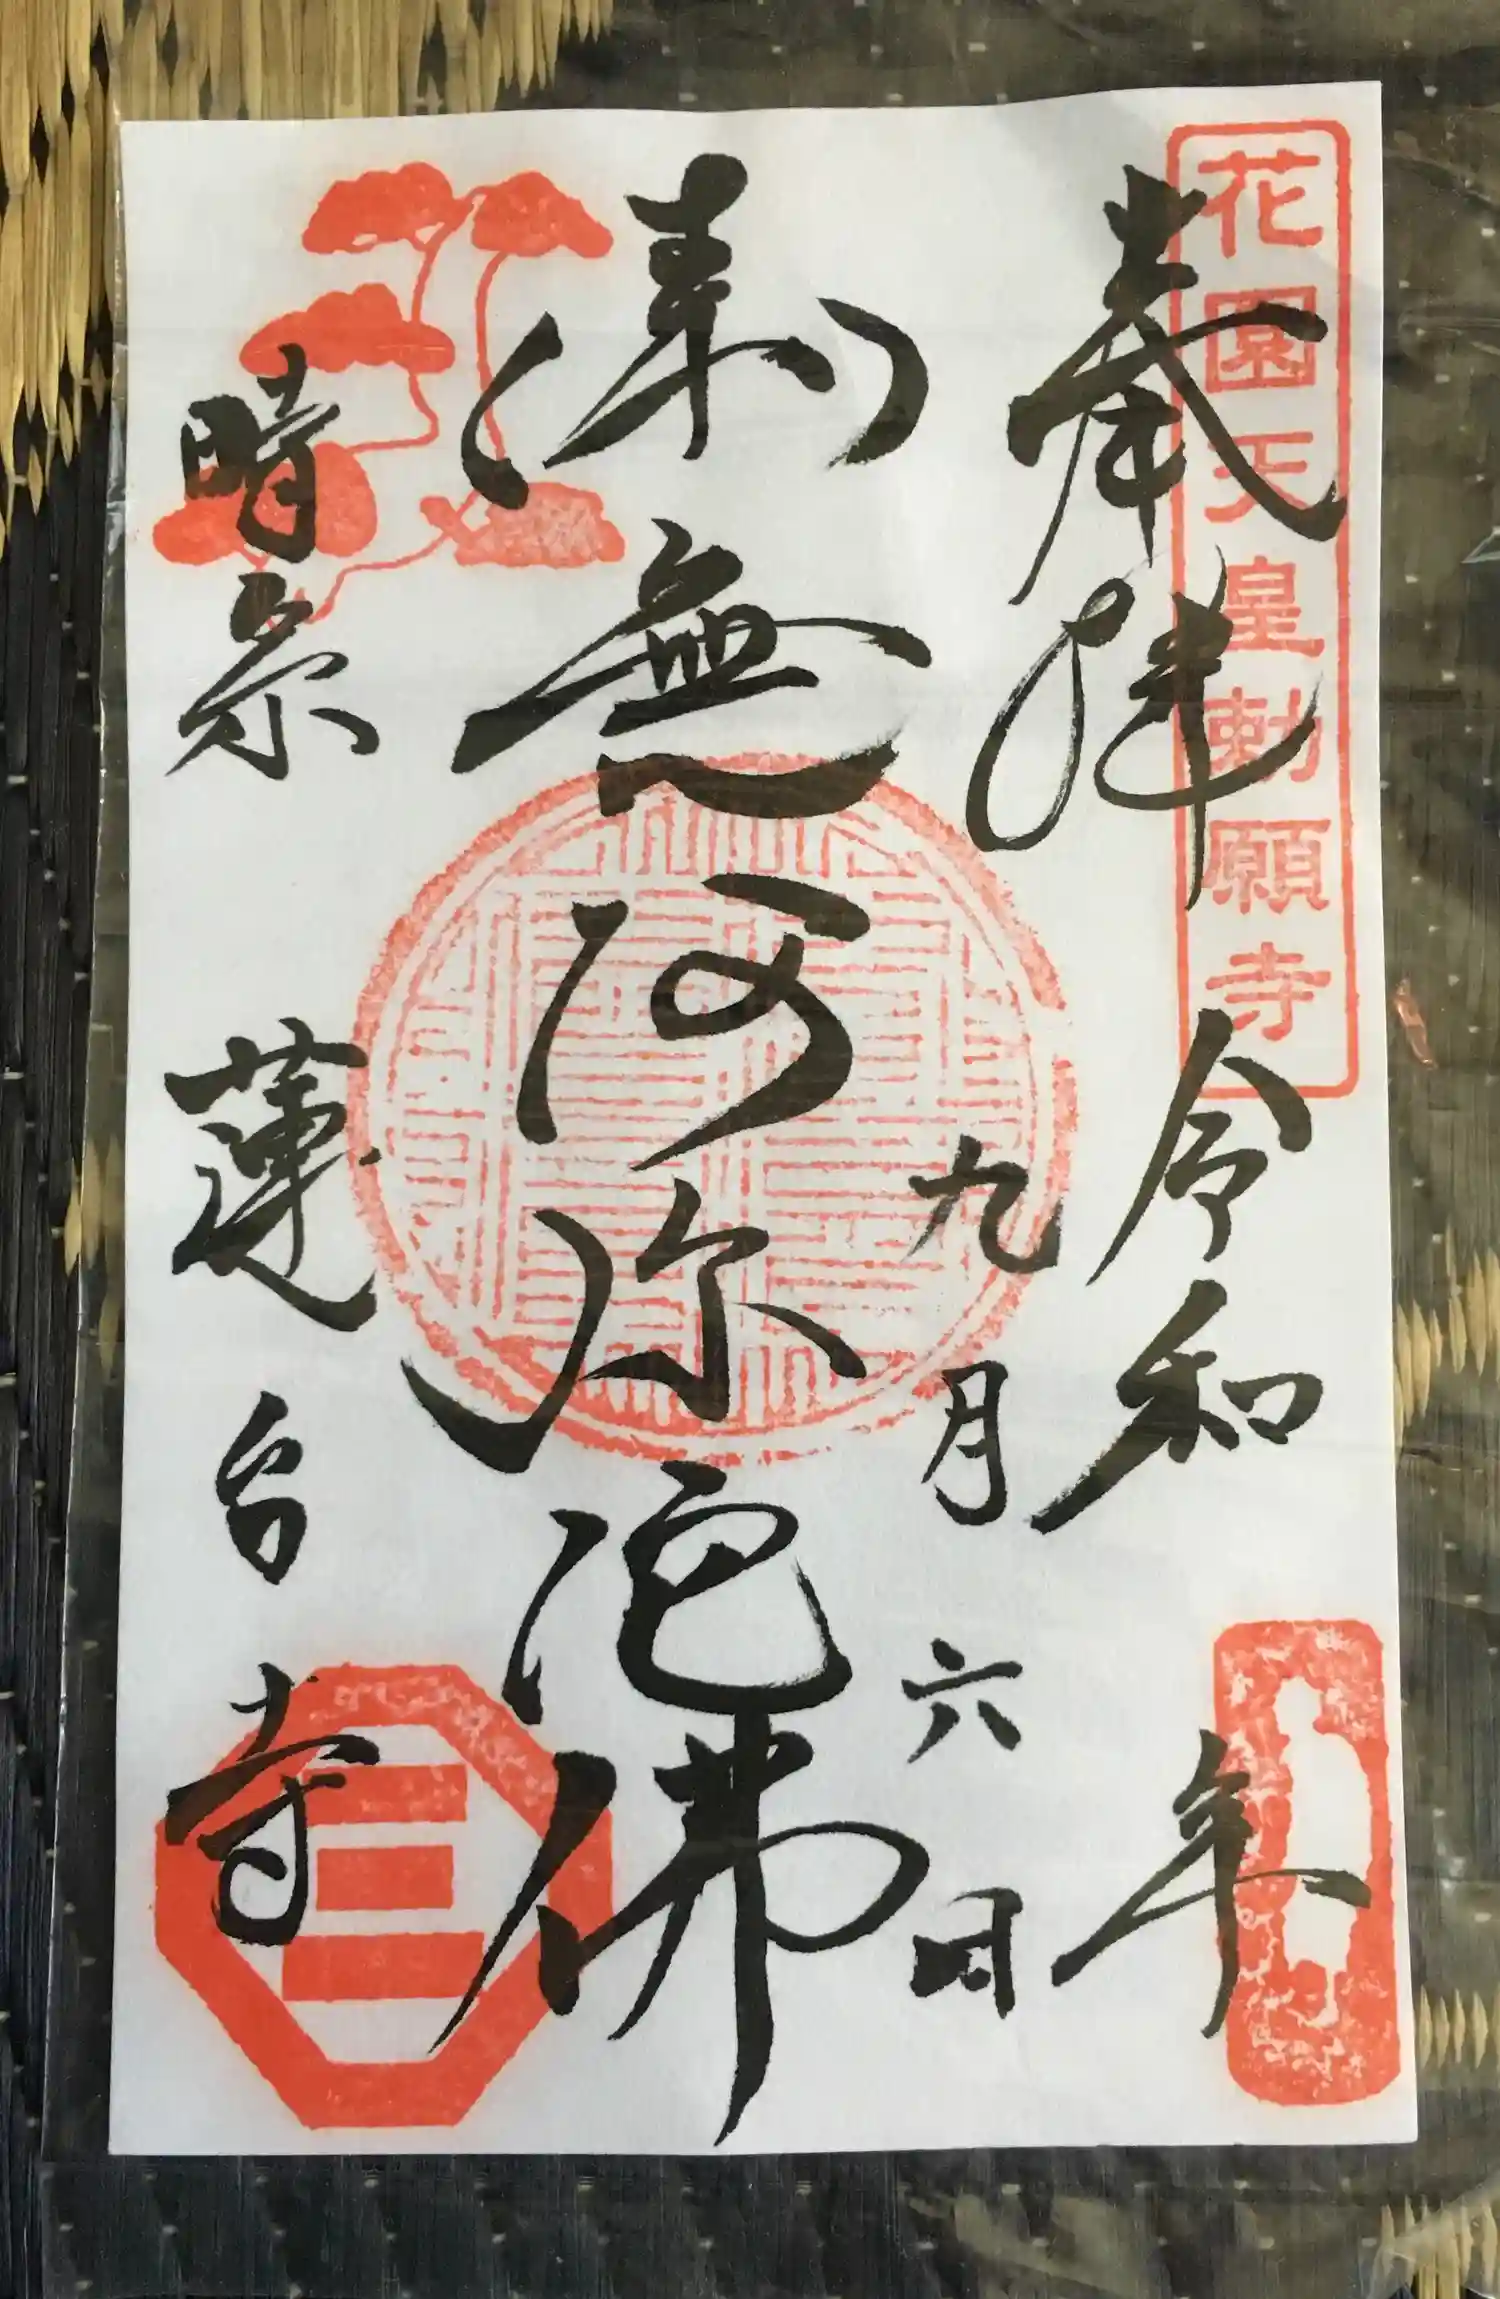 花園天皇勅願寺
奉拝 令和 年
九月六日
南無阿弥陀佛
時宗 蓮台寺